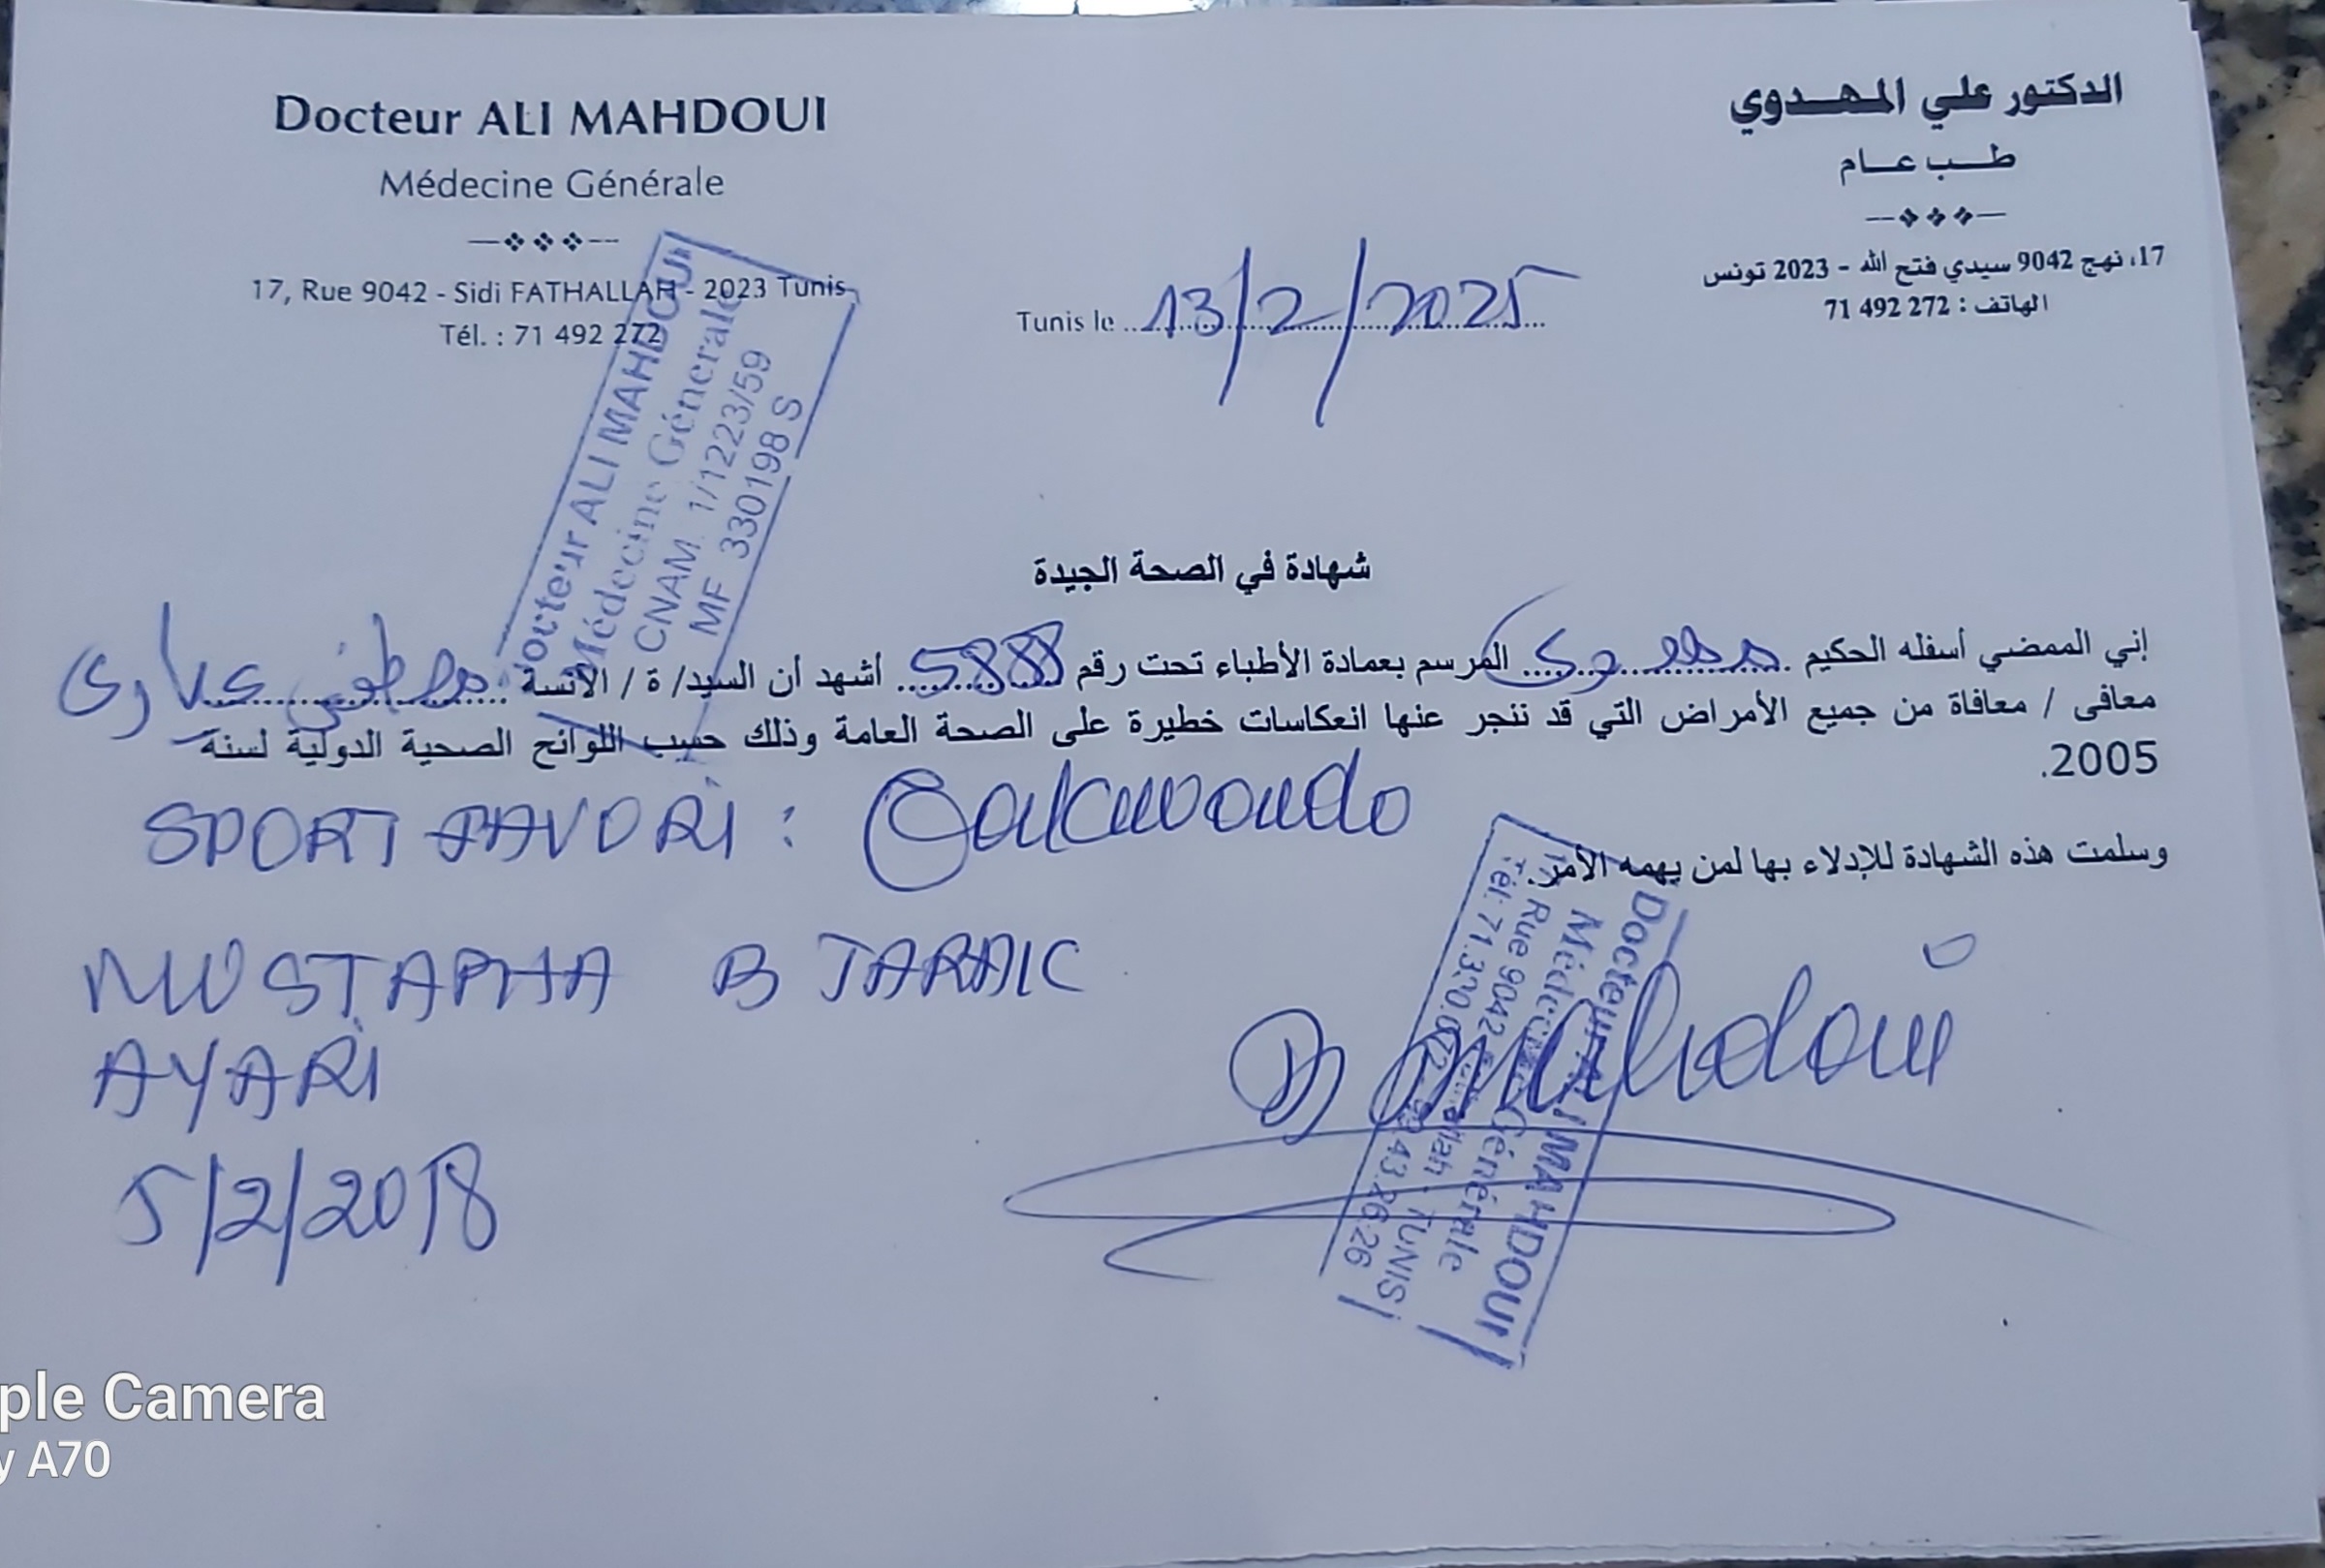 Docteur ALI MAHDOUI
Médecine Générale
17, Rue 9042 - Sidi FATHALLAH - 2023 Tunis
Tél. : 71 492 272
الدكتور علي المهدوي
طب عام
17، نهج 9042 سيدي فتح الله - 2023 تونس
الهاتف : 272 492 71
Tunis le 13/2/2025
Docteur ALI MAHDOUI
Médecine Générale
CNAM 1/1223/59
MF 330198 S
شهادة في الصحة الجيدة
إني الممضي أسفله الحكيم مهدوي المرسم بعمادة الأطباء تحت رقم 5888 أشهد أن السيد/ ة / الآنسة مصطفى عياري
معافى / معافاة من جميع الأمراض التي قد ننجر عنها انعكاسات خطيرة على الصحة العامة وذلك حسب اللوائح الصحية الدولية لسنة
2005.
SPORT FAVORI : Taekwondo
وسلمت هذه الشهادة للإدلاء بها لمن يهمه الأمر.
MUSTAPHA B TARAK
AYARI
5/2/2018
Dr Mahdoui
Docteur ALI MAHDOUI
Médecine Générale
Rue 9042 TUNIS
ple Camera
y A70